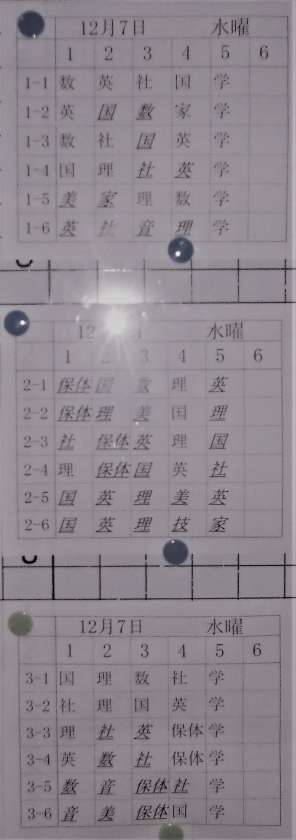 12月7日 水曜
1 2 3 4 5 6
1-1 数 英 社 国 学
1-2 英 国 数 家 学
1-3 数 社 国 英 学
1-4 国 理 社 英 学
1-5 美 家 理 数 学
1-6 英 社 音 理 学
12 水曜
1 2 3 4 5 6
2-1 保体 国 数 理 英
2-2 保体 理 美 国 理
2-3 社 保体 英 理 国
2-4 理 保体 国 英 社
2-5 国 英 理 美 英
2-6 国 英 理 技 家
12月7日 水曜
1 2 3 4 5 6
3-1 国 理 数 社 学
3-2 社 理 国 英 学
3-3 理 社 英 保体 学
3-4 英 数 社 保体 学
3-5 数 音 保体 社 学
3-6 音 美 保体 国 学